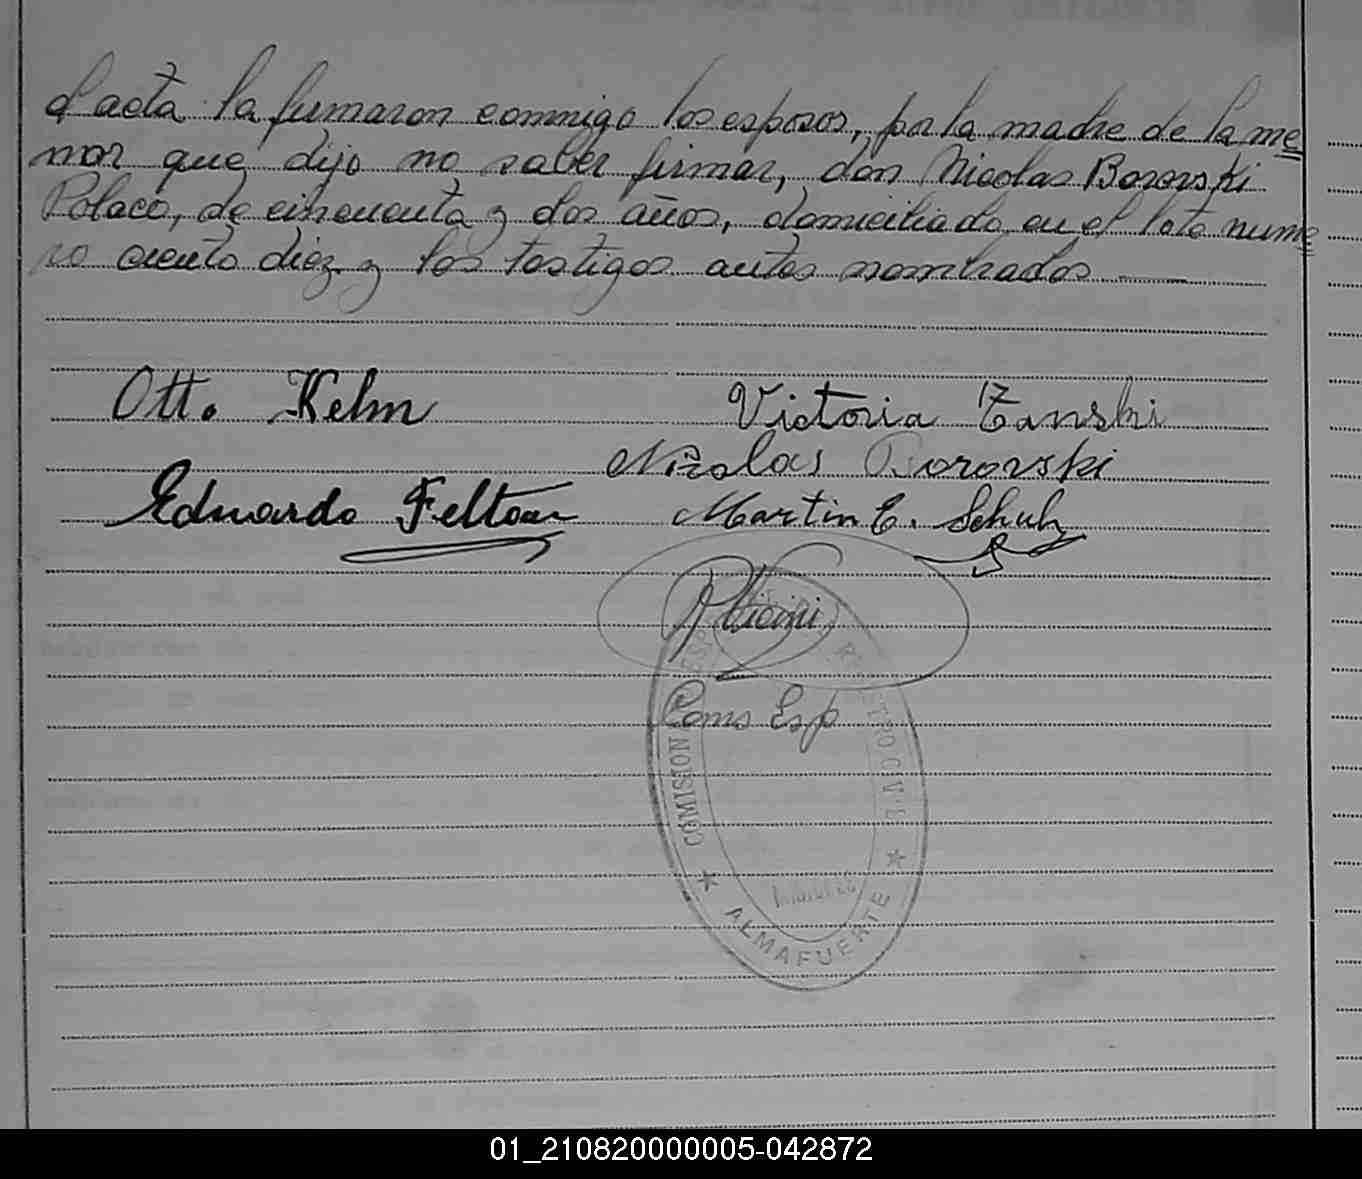 el acta la firmaron conmigo los esposos, por la madre de la me
nor que dijo no saber firmar, don Nicolas Borovski
Polaco, de cincuenta y dos años, domiciliado en el lote nume
ro ciento diez y los testigos antes nombrados
Otto Kelm
Victoria Zanski
Nikolas Borovski
Eduardo Feltan
Martin E. Schulz
Coms Esp
COMISION ESP REGISTRO CIVIL
★ ALMAFUERTE ★
MISIONES
01_210820000005-042872